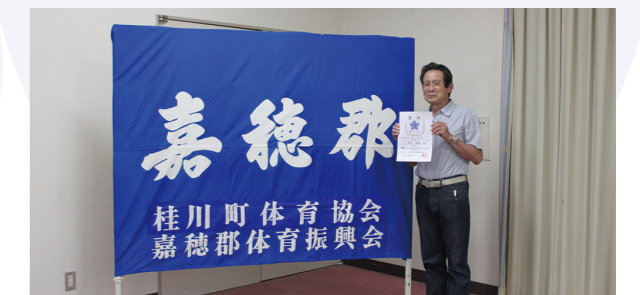 嘉穂郡
桂川町体育協会
嘉穂郡体育振興会